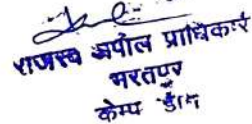 राजस्व अपील प्राधिकारी
भरतपुर
कैम्प डीग